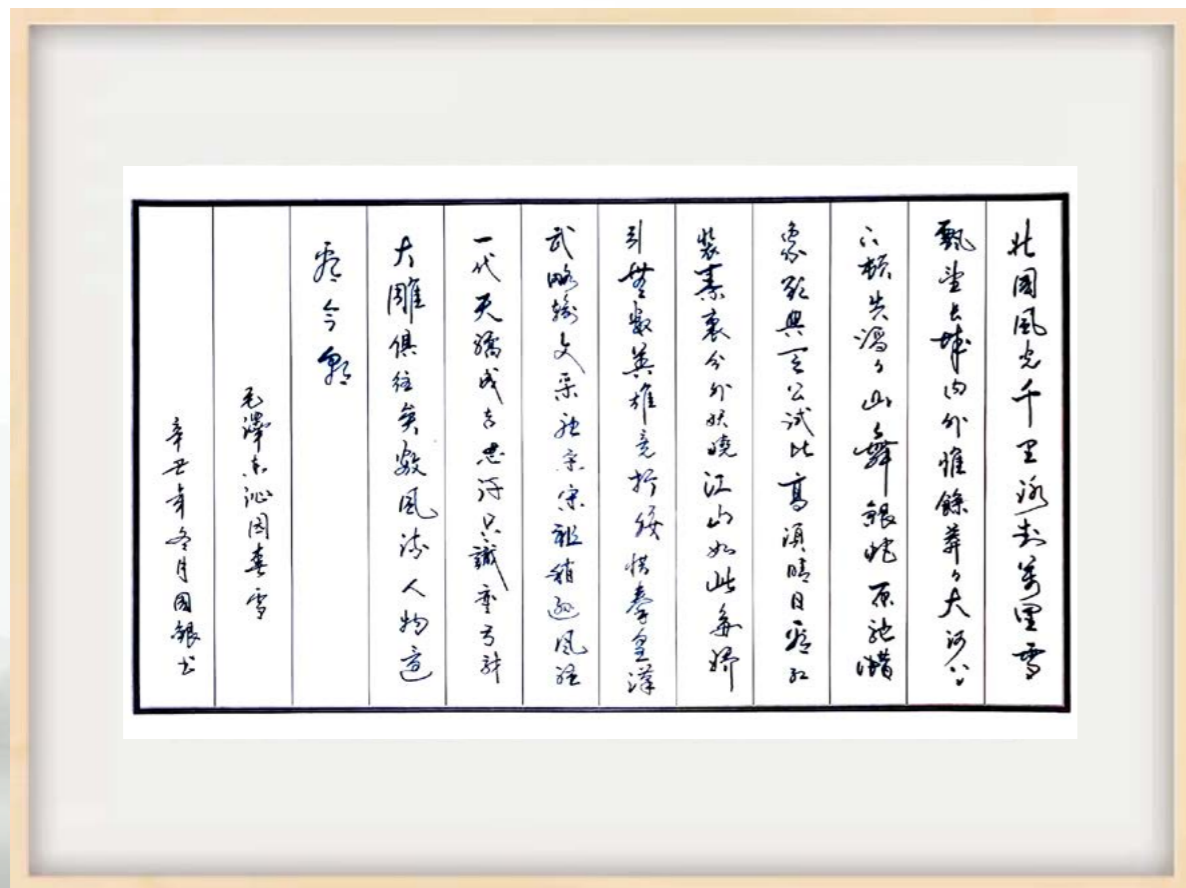 北國風光千里冰封萬里雪
飄望長城内外惟餘莽々大河上
下頓失滔々山舞銀蛇原馳蠟
象欲與天公試比高須晴日看紅
裝素裹分外妖嬈江山如此多嬌
引無數英雄竞折腰惜秦皇漢
武略輸文采唐宗宋祖稍遜風騷
一代天驕成吉思汗只識彎弓射
大雕俱往矣數風流人物還
看今朝
毛澤東沁園春雪
辛丑年冬月國銀书